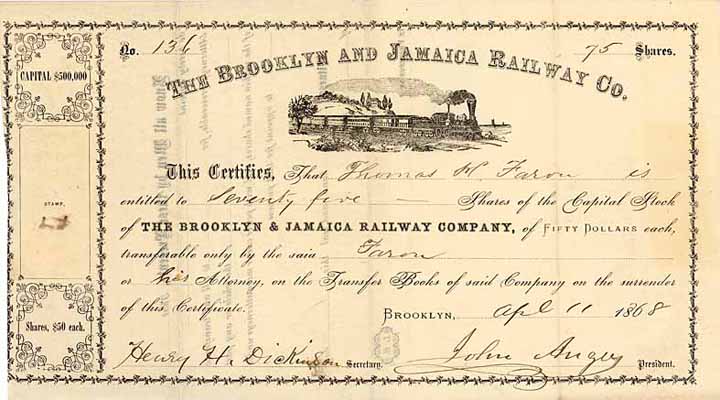 No. 136
75 Shares.
CAPITAL $500,000
THE BROOKLYN AND JAMAICA RAILWAY CO.
This Certifies, That Thomas H. Faron is
entitled to Seventy five — Shares of the Capital Stock
of THE BROOKLYN & JAMAICA RAILWAY COMPANY, of FIFTY DOLLARS each,
transferable only by the said Faron
or his Attorney, on the Transfer Books of said Company on the surrender
of this Certificate.
BROOKLYN, Apl 11 1868
STAMP.
Shares, $50 each.
Henry H. Dickinson Secretary.
John President.